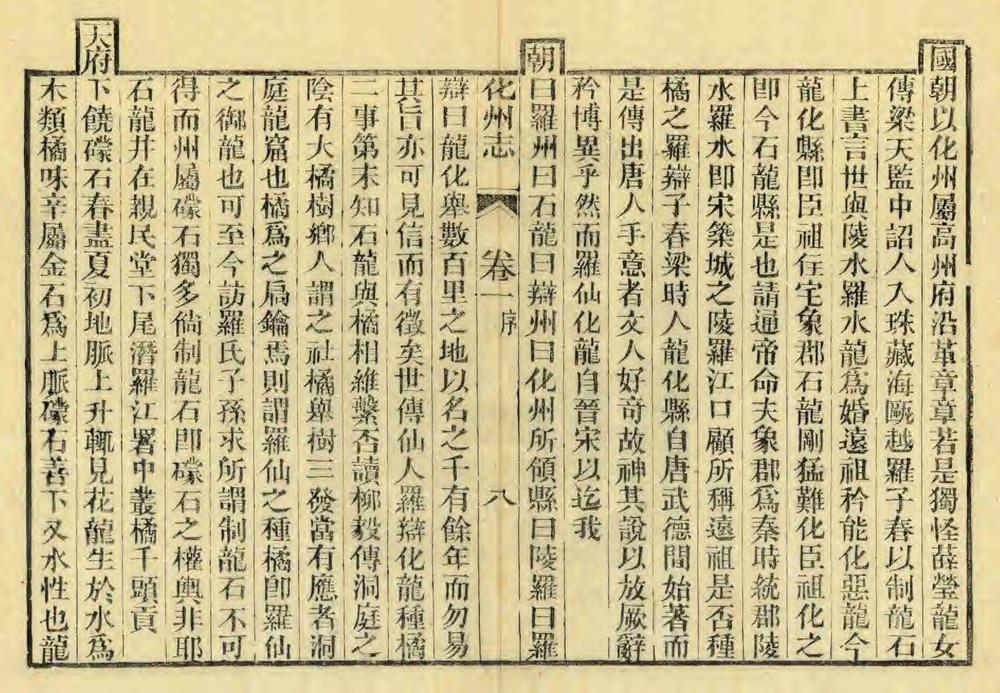 國朝以化州屬高州府沿革章章若是獨怪薛瑩龍女
傳梁天監中詔人入珠藏海甌越羅子春以制龍石
上書言世與陵水羅水龍為婚遠祖矜能化惡龍今
龍化縣即臣祖住宅象郡石龍剛猛難化臣祖化之
即今石龍縣是也請通帝命夫象郡為秦時統郡陵
水羅水即宋築城之陵羅江口顧所稱遠祖是否種
橘之羅辯子春梁時人龍化縣自唐武德間始著而
是傳出唐人手意者文人好奇故神其說以放厥辭
矜博異乎然而羅仙化龍自晉宋以迄我
朝曰羅州曰石龍曰辯州曰化州所領縣曰陵羅曰羅
化州志 卷一 序 八
辯曰龍化舉數百里之地以名之千有餘年而勿易
其旨亦可見信而有徵矣世傳仙人羅辯化龍種橘
二事第未知石龍與橘相維繫否讀柳毅傳洞庭之
陰有大橘樹鄉人謂之社橘舉樹三發當有應者洞
庭龍窟也橘為之扃鑰焉則謂羅仙之種橘即羅仙
之御龍也可至今訪羅氏子孫求所謂制龍石不可
得而州屬礞石獨多倘制龍石即礞石之權輿非耶
石龍井在親民堂下尾潛羅江署中叢橘千頭貢
天府下饒礞石春盡夏初地脈上升輒見花龍生於水為
木類橘味辛屬金石為上脈礞石善下又水性也龍